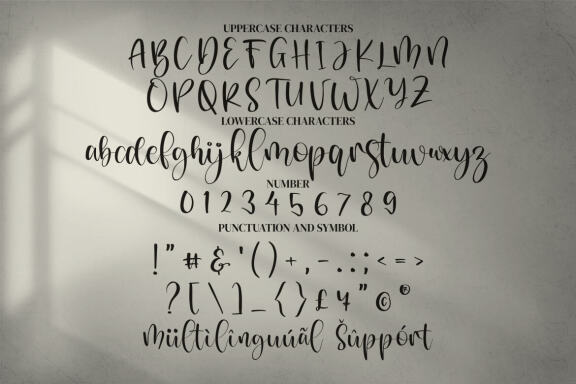 UPPERCASE CHARACTERS
ABCDEFGHIJKLMN
OPQRSTUVWXYZ
LOWERCASE CHARACTERS
abcdefghijklmopqrstuvwxyz
NUMBER
0 1 2 3 4 5 6 7 8 9
PUNCTUATION AND SYMBOL
! " # & ' ( ) + , - . : ; < = >
? [ \ ] _ { } £ ¥ " © ®
Müìltìlînguúãl Šûppórt